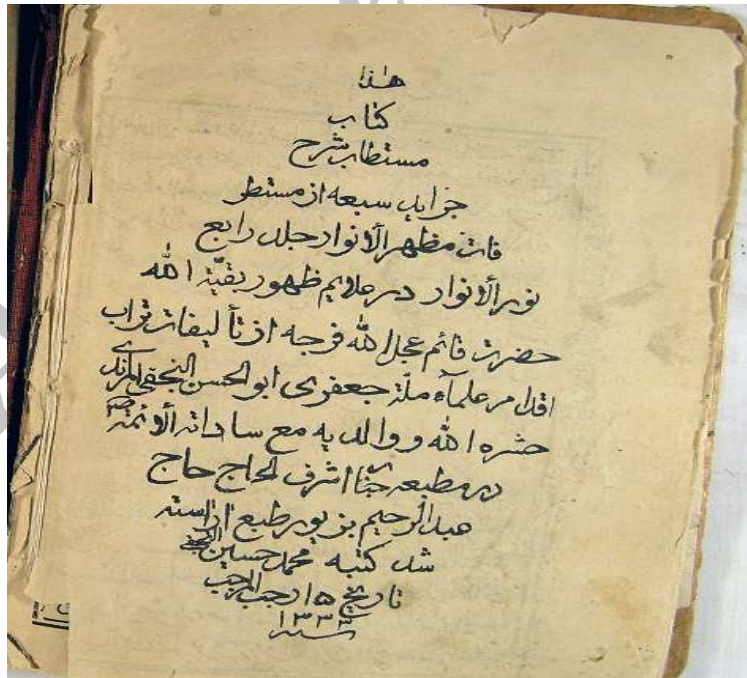 هذا
كتاب
مستطاب شرح
جزاير سبعه از مستطر
فات مظهر الانوار جلد رابع
نور الانوار در علايم ظهور بقيّة الله
حضرت قائم عجل الله فرجه از تأليفات تراب
اقدام علمآء ملّة جعفرى ابو الحسن النجفى المرندى
حشره الله و والديه مع ساداته الائمة
در مطبعه جناب اشرف الحاج حاج
عبد الرحيم بزيور طبع اراسته
شد كتبه محمد حسين
تاريخ ۱۵ رجب المرجب
سنه ۱۳۳۳